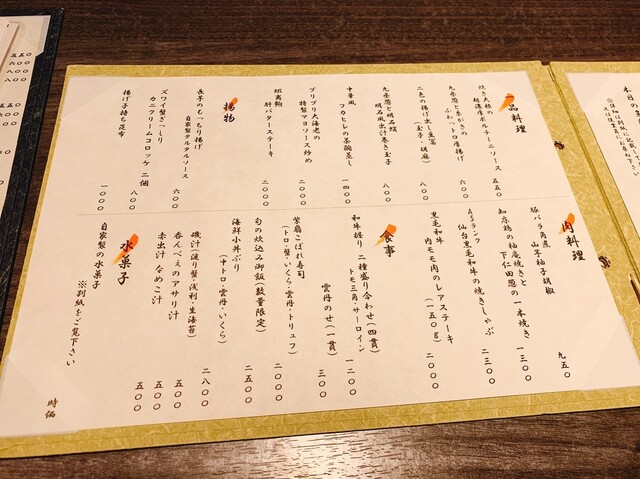 一品料理
炊き大根の
超濃厚ポルチーニソース 五五〇
九条葱と糸がきの
ふわっトロ厚揚げ 六〇〇
二色の揚げ出し豆富
(玉子・胡麻) 八〇〇
九条葱と明石蛸
明石風出汁巻き玉子 八〇〇
中華風
フカヒレの茶碗蒸し 一四〇〇
プリプリ大海老の
特製マヨソース炒め 二〇〇〇
蝦夷鮑
肝バターステーキ 二〇〇〇
揚物
長芋のもっちり揚げ
自家製タルタルソース 六〇〇
ズワイ蟹ぎっしり
カニクリームコロッケ 二個 八〇〇
揚げ子持ち昆布 一〇〇〇
肉料理
豚バラ角煮
山芋柚子胡椒 九五〇
知床鶏の柚庵焼きと
下仁田葱の一本焼き 一三〇〇
A5ランク
仙台黒毛和牛の焼きしゃぶ 二三〇〇
黒毛和牛
内モモ肉のレアステーキ
(一五〇g) 二〇〇〇
食事
和牛握り 二種盛り合わせ(四貫)
トモ三角・サーロイン 一二〇〇
雲丹のせ(一貫) 三〇〇
こぼれ寿司
(トロ・蟹・いくら・雲丹・トリュフ) 二〇〇〇
旬の炊込み御飯(数量限定) 二五〇〇
海鮮小丼ぶり
(中トロ・雲丹・いくら) 二八〇〇
磯汁(渡り蟹・浅利・生海苔) 五〇〇
呑んべえのアサリ汁 五〇〇
赤出汁 なめこ汁 五〇〇
水菓子
自家製の水菓子
※別紙をご覧下さい 時価